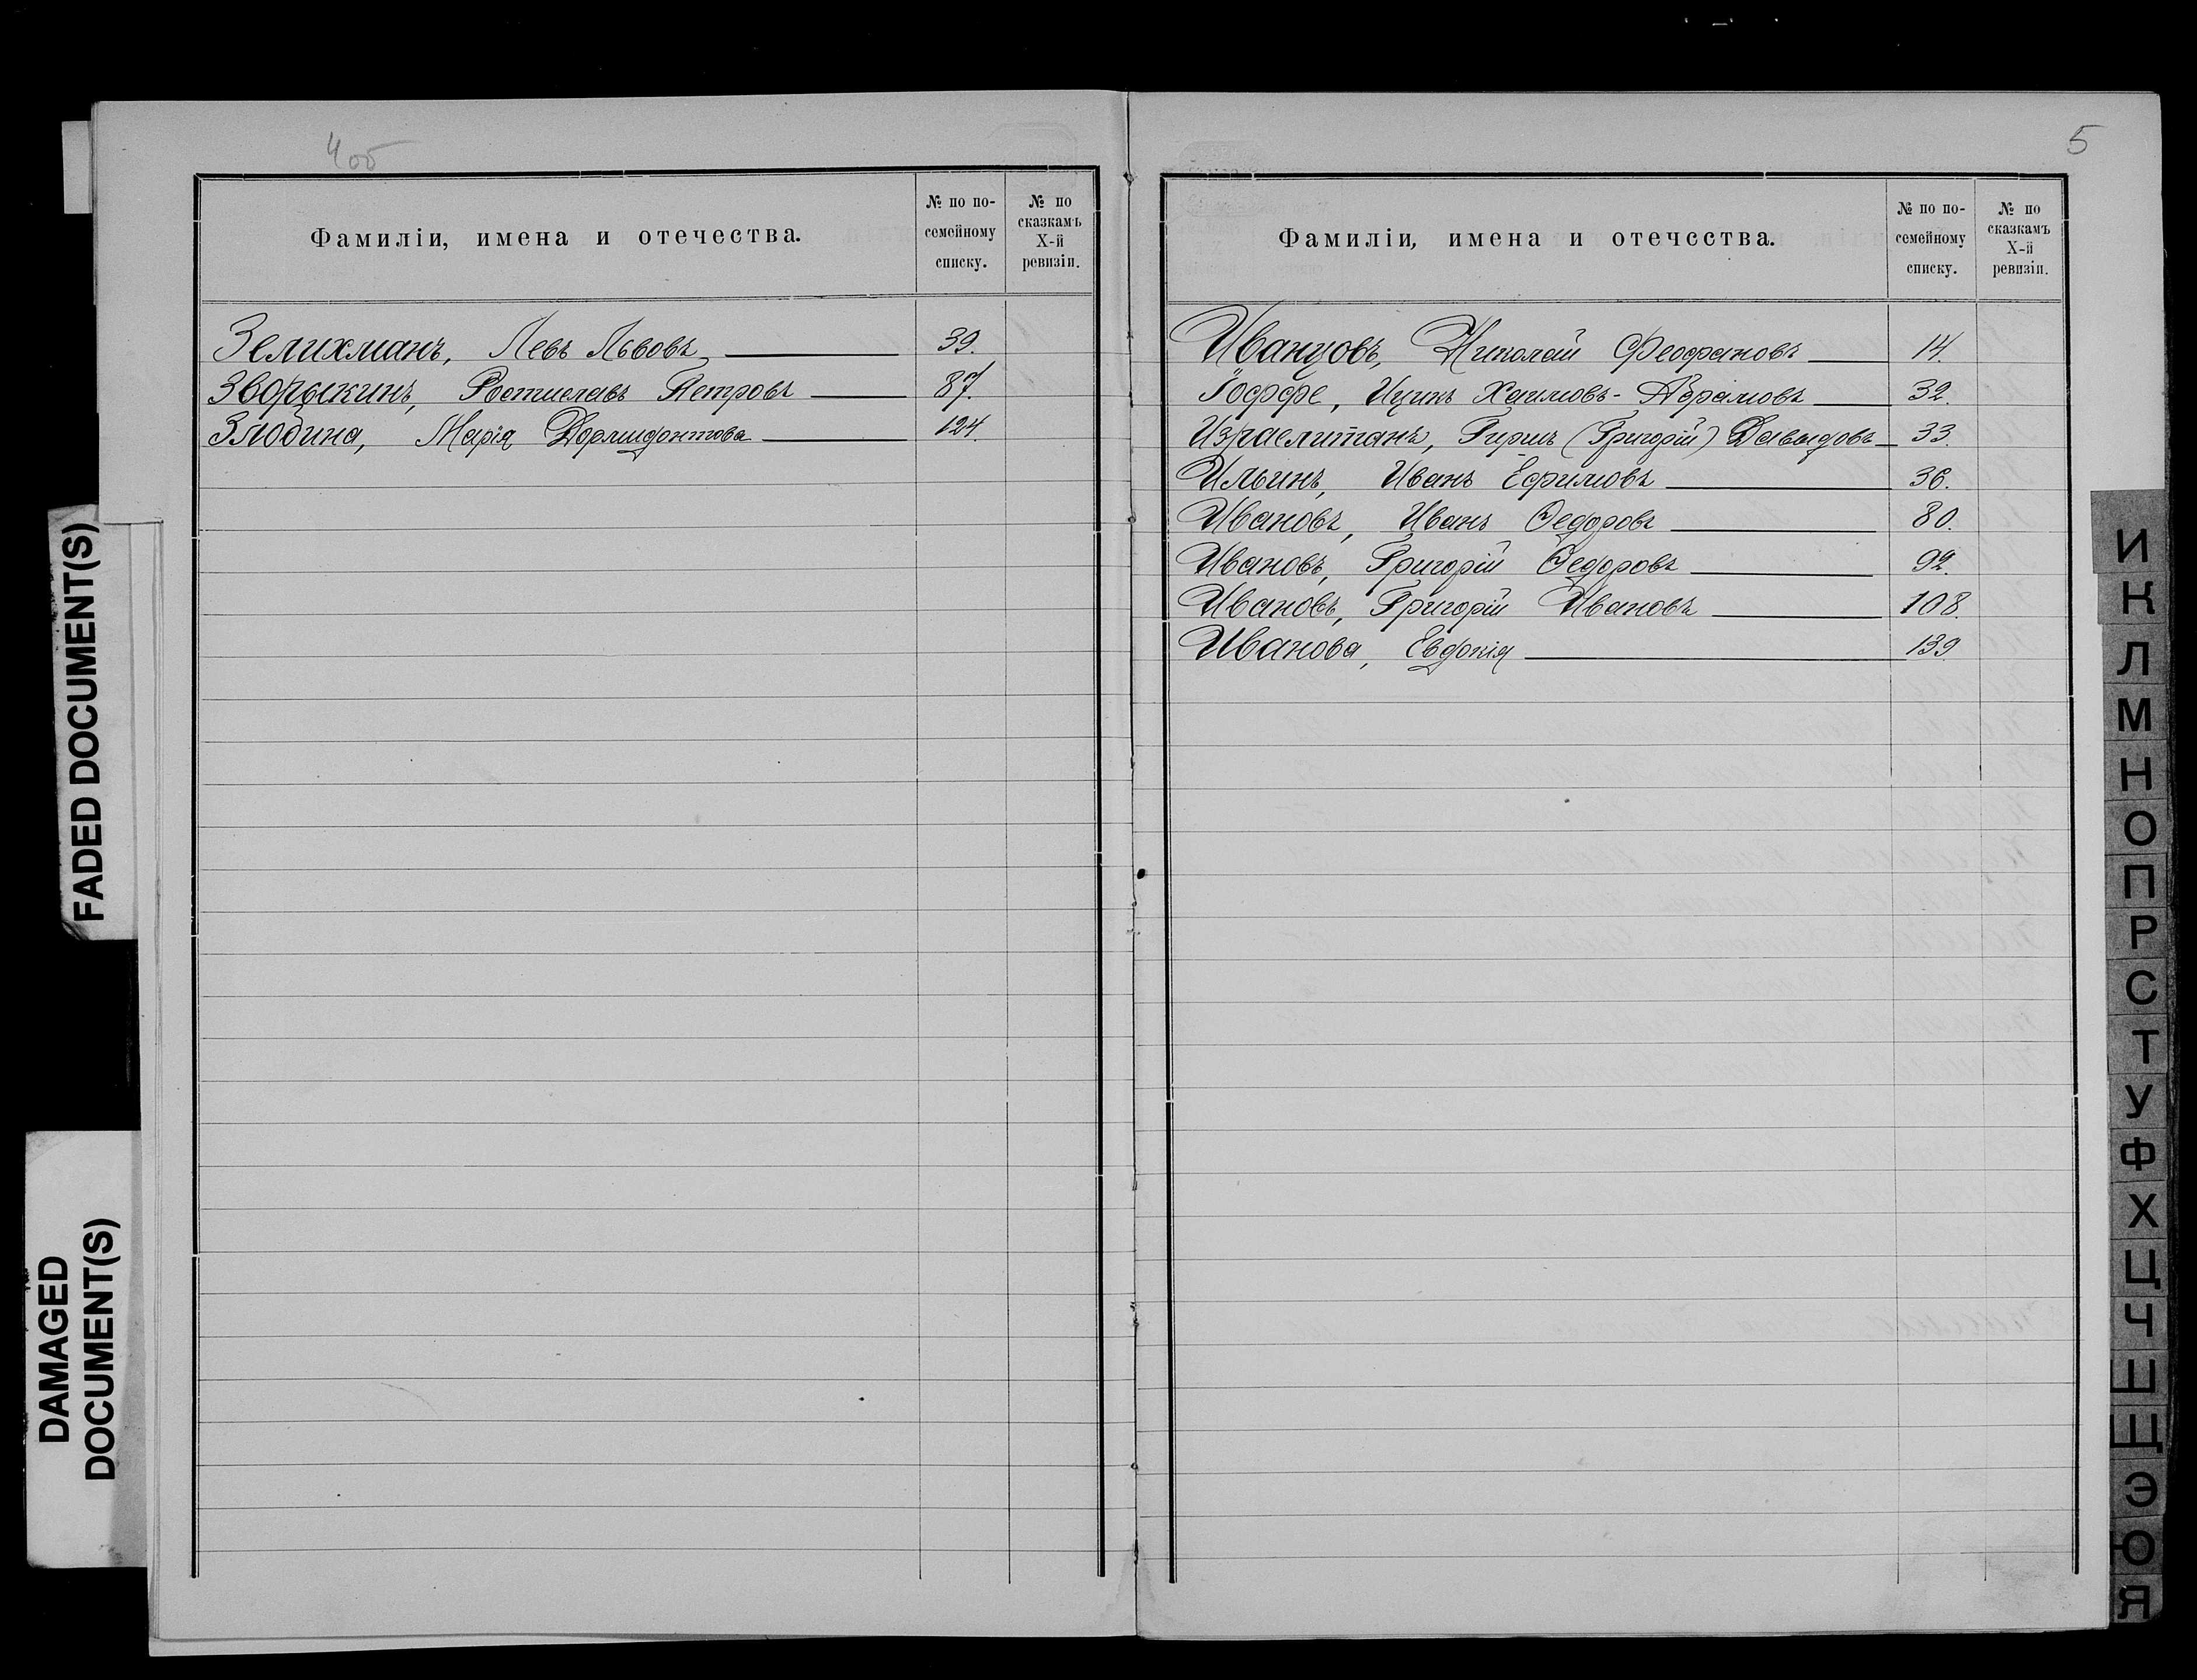 4 об
Фамиліи, имена и отечества.
№ по по-
семейному
списку.
№ по
сказкамъ
X-й
ревизіи.
Зелихманъ, Левъ Львовъ 39.
Зворыкинъ, Ростиславъ Петровъ 87.
Злобина, Марія Дормидонтова 124.
5
Фамиліи, имена и отечества.
№ по по-
семейному
списку.
№ по
сказкамъ
X-й
ревизіи.
Иванцовъ, Николай Феофановъ 14.
Іоффе, Ицикъ Хаимовъ-Абрамовъ 32.
Израелитанъ, Гиршъ (Григорій) Давыдовъ 33.
Ильинъ, Иванъ Ефимовъ 36.
Ивановъ, Иванъ Ѳедоровъ 80.
Ивановъ, Григорій Ѳедоровъ 92.
Ивановъ, Григорій Ивановъ 108.
Иванова, Евдокія 139
FADED DOCUMENT(S)
DAMAGED
DOCUMENT(S)
И
К
Л
М
Н
О
П
Р
С
Т
У
Ф
Х
Ц
Ч
Ш
Щ
Э
Ю
Я